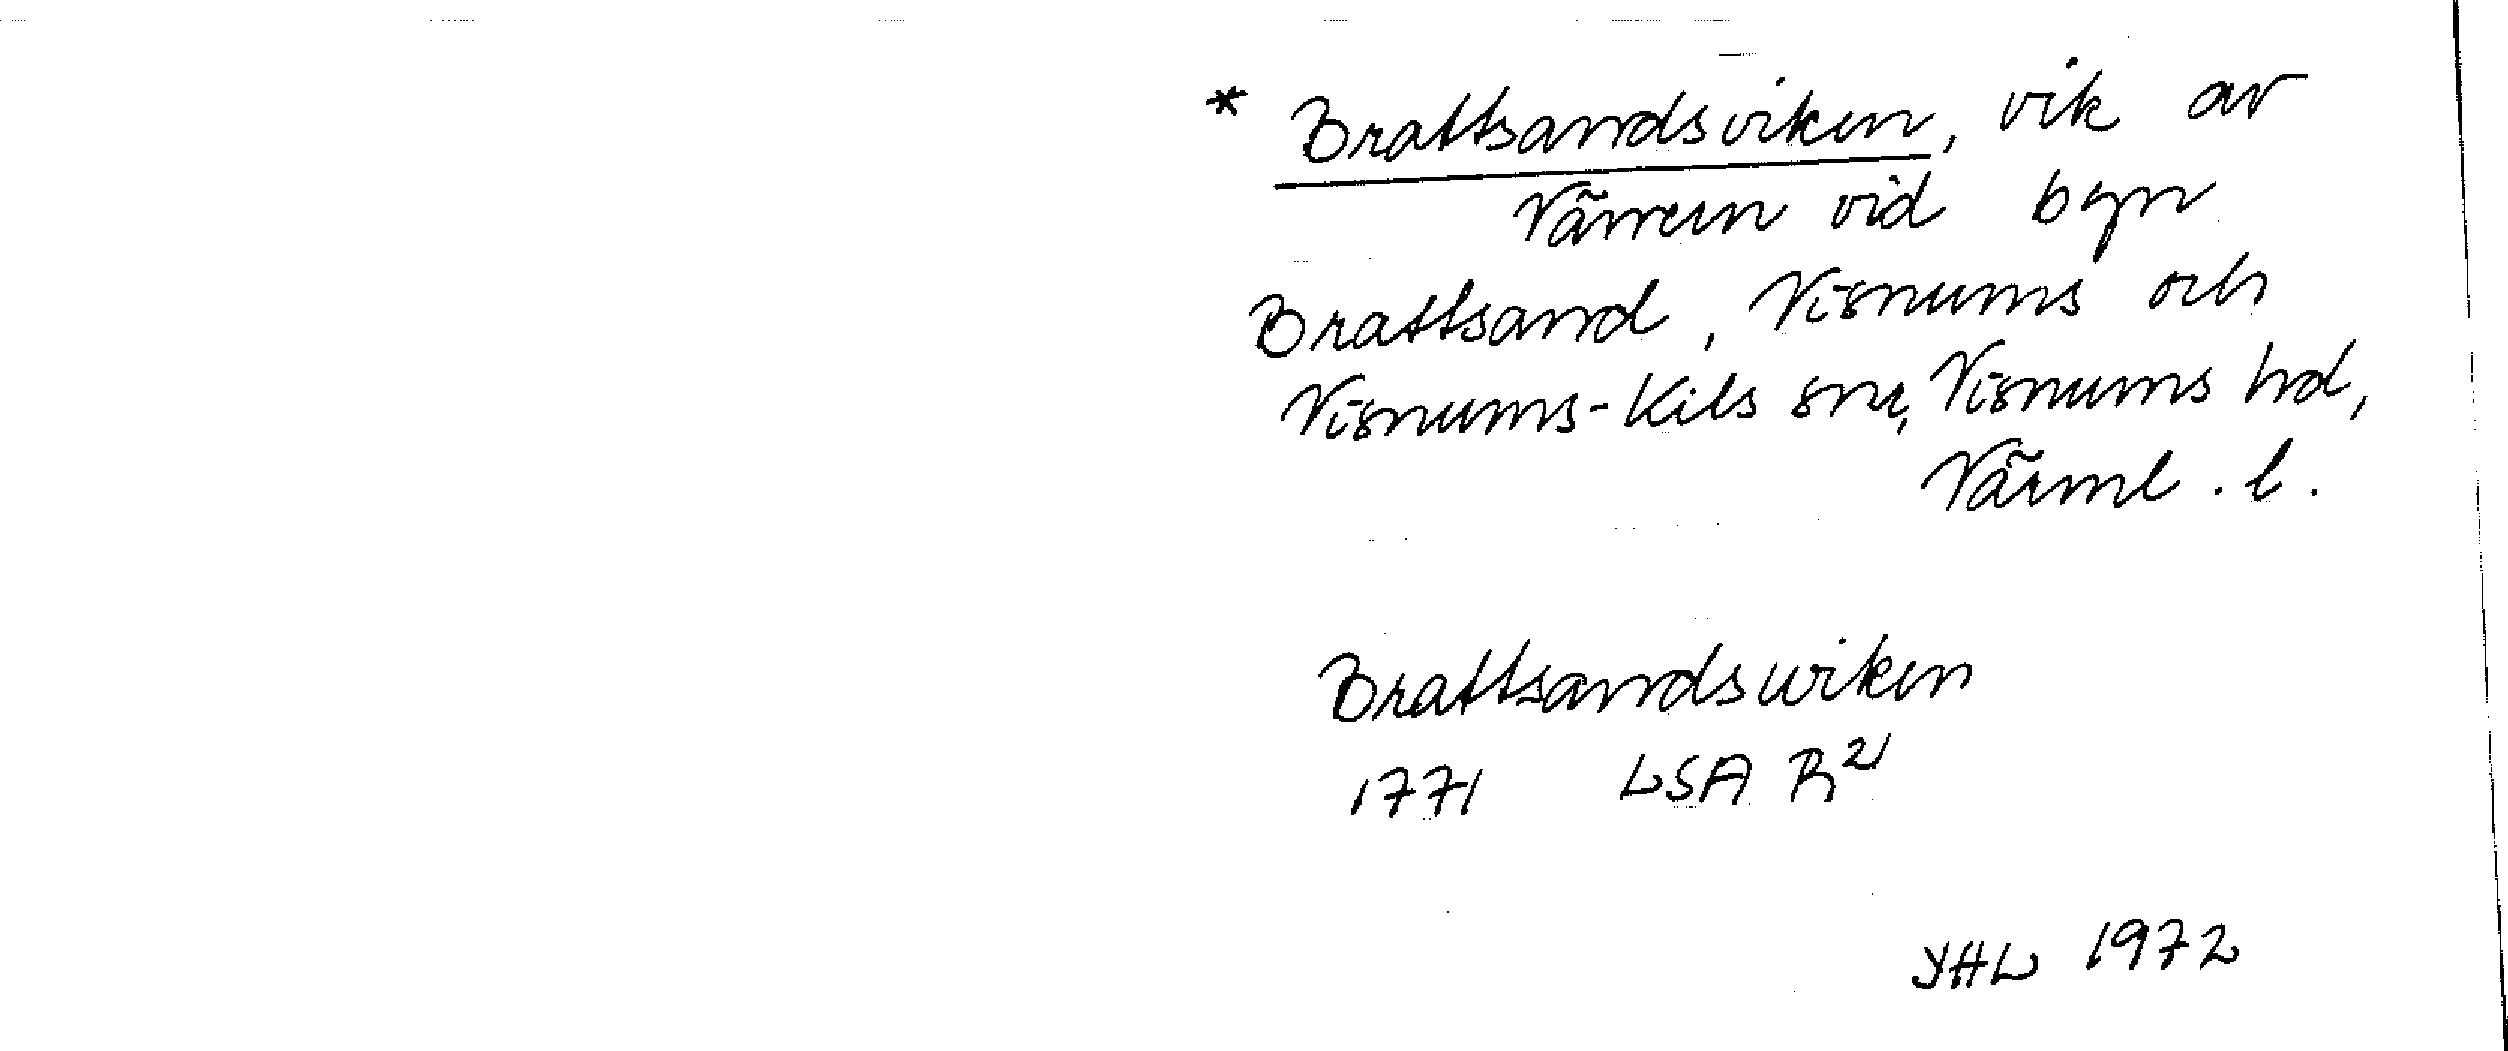 * Brattsandsviken, vik av
Vänern vid byn
Brattsand, Visnums och
Visnums-Kils snr, Visnums hd,
Värml. l.
Brattsandswiken
1771 LSA R²¹
YHL 1972